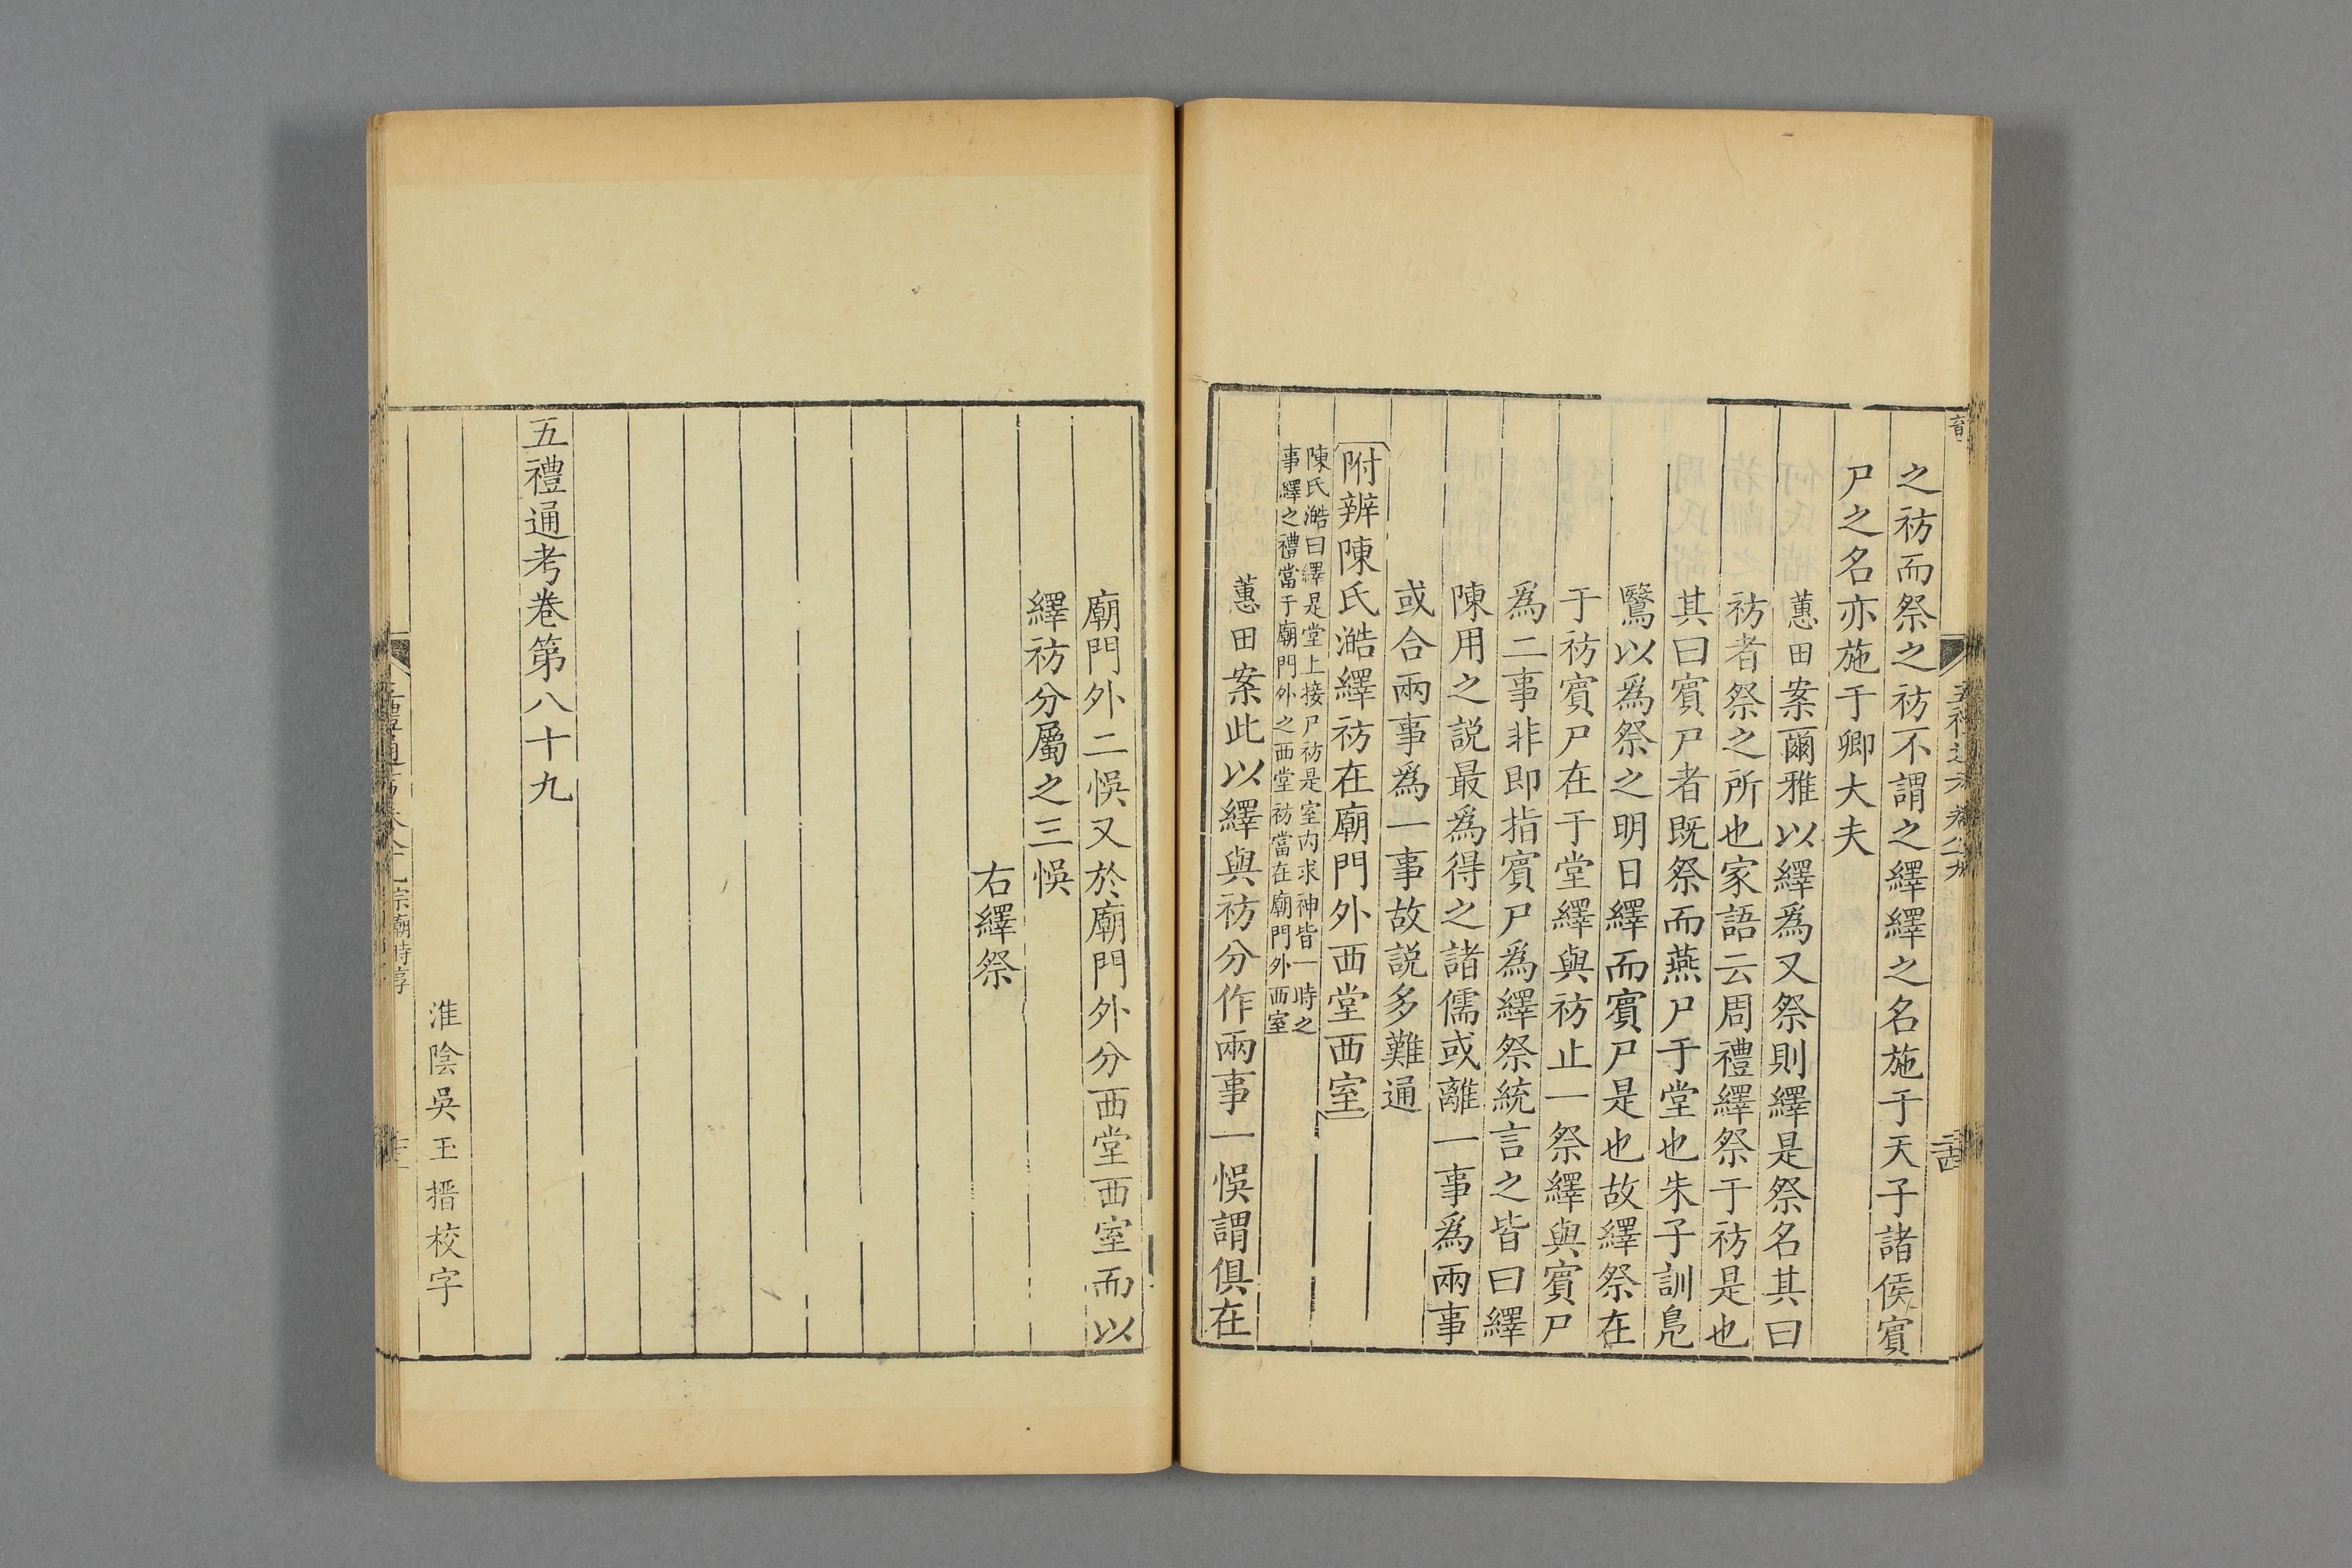 之祊而祭之祊不謂之繹繹之名施于天子諸侯賓
尸之名亦施于卿大夫
蕙田案爾雅以繹爲又祭則繹是祭名其曰
祊者祭之所也家語云周禮繹祭于祊是也
其曰賓尸者既祭而燕尸于堂也朱子訓鳬
鷖以爲祭之明日繹而賓尸是也故繹祭在
于祊賓尸在于堂繹與祊止一祭繹與賓尸
爲二事非即指賓尸爲繹祭統言之皆曰繹
陳用之説最爲得之諸儒或離一事爲兩事
或合兩事爲一事故説多難通
附辨陳氏澔繹祊在廟門外西堂西室
陳氏澔曰繹是堂上接尸祊是室內求神皆一時之
事繹之禮當于廟門外之西堂祊當在廟門外西室
蕙田案此以繹與祊分作兩事一悞謂俱在
廟門外二悞又於廟門外分西堂西室而以
繹祊分屬之三悞
右繹祭
五禮通考卷第八十九
淮陰吳玉搢校字
宗廟時享